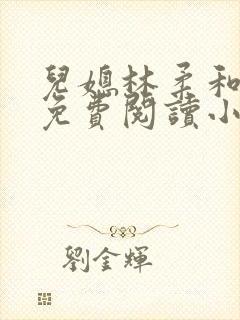 兒媳林柔和
免費閱讀小
劉金輝